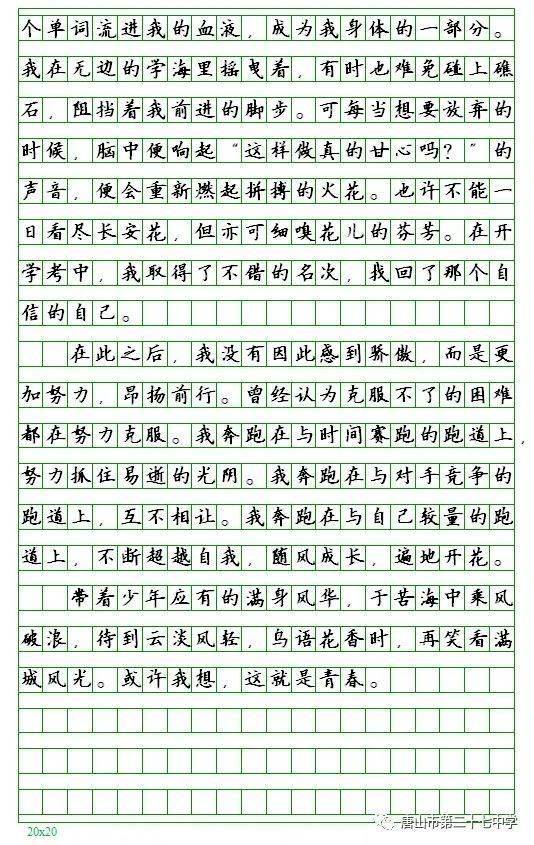 个单词流进我的血液，成为我身体的一部分。
我在无边的学海里摇曳着，有时也难免碰上礁
石，阻挡着我前进的脚步。可每当想要放弃的
时候，脑中便响起“这样做真的甘心吗？”的
声音，便会重新燃起拼搏的火花。也许不能一
日看尽长安花，但亦可细嗅花儿的芬芳。在开
学考中，我取得了不错的名次，找回了那个自
信的自己。
在此之后，我没有因此感到骄傲，而是更
加努力，昂扬前行。曾经认为克服不了的困难
都在努力克服。我奔跑在与时间赛跑的跑道上，
努力抓住易逝的光阴。我奔跑在与对手竞争的
跑道上，互不相让。我奔跑在与自己较量的跑
道上，不断超越自我，随风成长，遍地开花。
带着少年应有的满身风华，于苦海中乘风
破浪，待到云淡风轻，鸟语花香时，再笑看满
城风光。或许我想，这就是青春。
20x20
唐山市第二十七中学